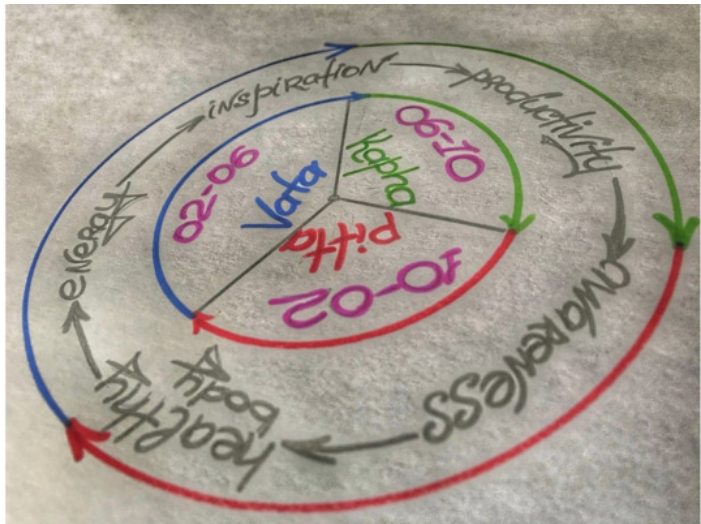 inspiration
productivity
awareness
healthy
body
energy
02-06
Vata
06-10
Kapha
Pitta
10-02